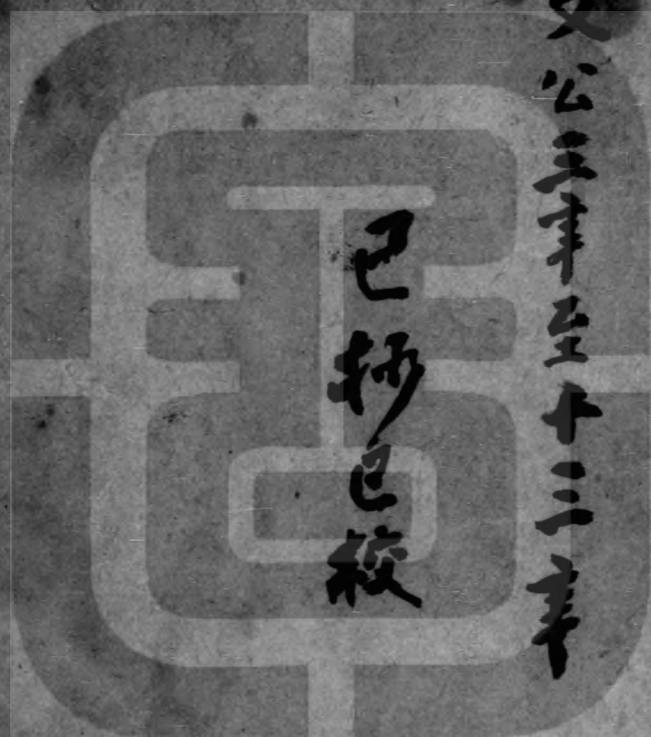 文公三年至十三年
已抄已校